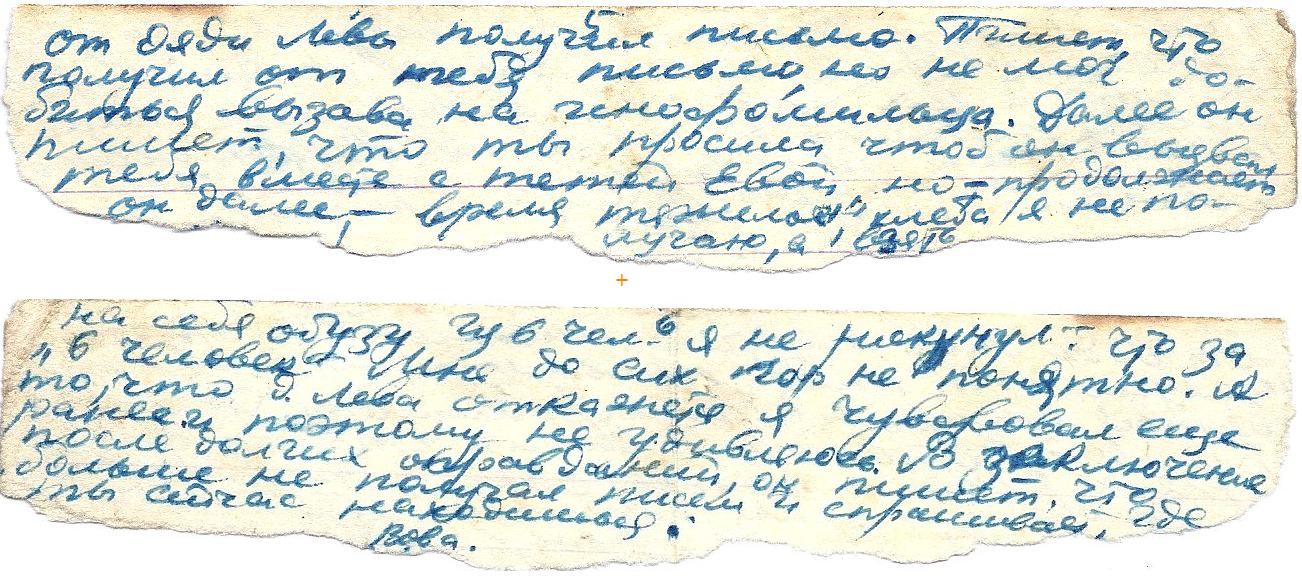 от дяди Лёвы получил письмо. Пишет, что
получил от тебя письмо, но не мог до-
биться вызова на инофомильца. Далее он
пишет, что ты просила чтоб он вызвал
тебя вместе с тетей Евой но – продолжает
он далее – время тяжелое, хлеба я не по-
лучаю, а взять
+
на себя обузу из 6 чел. я не рискнул". Что за
"6 человек" мне до сих пор не понятно. А
то, что д. Лева откажется я чувствовал еще
ранее и поэтому не удивляюсь. В заключении
после долгих оправданий, он пишет, что
больше не получал писем и спрашивает, где
ты сейчас находишься.
Вова.